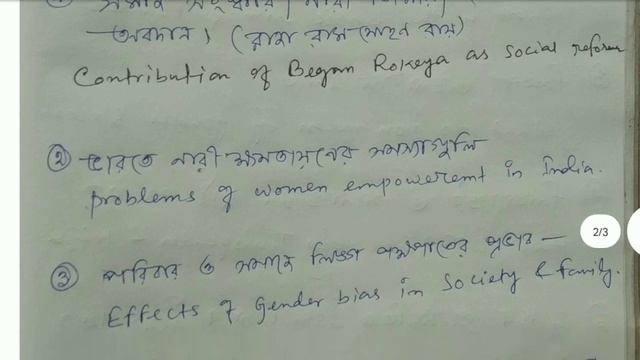 সমাজ সংস্কার, নারী
অবদান। (রাজা রামমোহন রায়)
Contribution of Begam Rokeya as social reformer
② ভারতে নারী ক্ষমতায়নের সমস্যাগুলি
problems of women empowerement in India.
2/3
③ পরিবার ও সমাজে লিঙ্গ পক্ষপাতের প্রভাব —
Effects of Gender bias in Society & family.